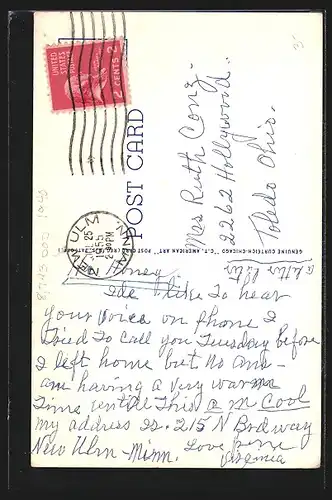 UNITED STATES POSTAGE
2 CENTS 2
NEW ULM
JUL 25
1955
2:30 PM
MINN.
POST CARD
GENUINE CURTEICH-CHICAGO "C.T. AMERICAN ART" POST CARD (REG. U.S. PAT. OFF.)
Mrs Ruth Conz.
2262 Hollywood.
Toledo Ohio.
a letter later
Honey
Ide like to hear
your voice on phone I
tried to call you Tuesday before
I left home but no ans-
am having a very warm
time untill this a m Cool
my address is. 215 N Brdway
New Ulm - Minn. Love
Virginia